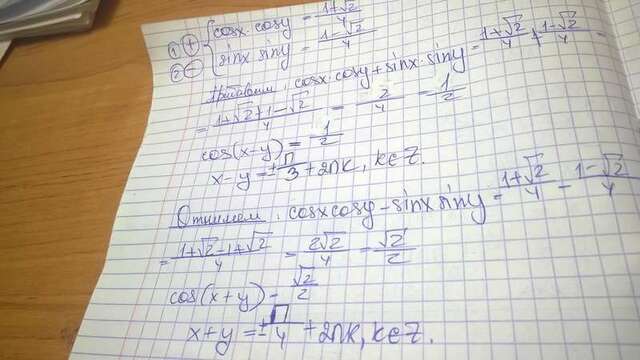 1) + { cosx·cosy = (1+√2)/4
2) − { sinx siny = (1−√2)/4
cosx·cosy + sinx·siny = (1+√2)/4 + (1−√2)/4 =
= (1+√2+1−√2)/4 = 2/4 = 1/2
cos(x−y) = 1/2
x−y = ±π/3 + 2πk, k∈Z.
Отнимем: cosxcosy − sinx siny = (1+√2)/4 − (1−√2)/4
= (1+√2−1+√2)/4 = 2√2/4 = √2/2
cos(x+y) = √2/2
x+y = ±π/4 + 2πk, k∈Z.